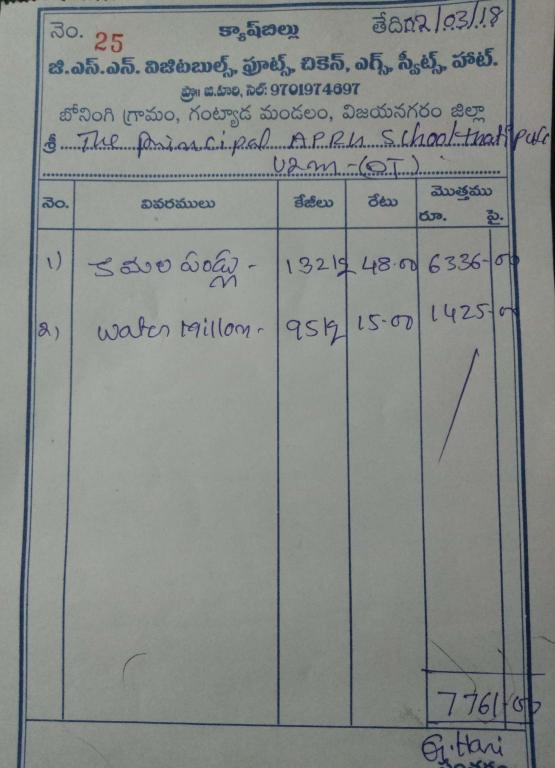 నెం. 25 క్యాష్‌బిల్లు తేది:02/03/18
జి.ఎస్.ఎన్. విజిటబుల్స్, ఫ్రూట్స్, చికెన్, ఎగ్స్, స్వీట్స్, హాట్.
ప్రొ॥ జి.హరి, సెల్: 9701974697
బోనింగి గ్రామం, గంట్యాడ మండలం, విజయనగరం జిల్లా
శ్రీ The principal APRH School
VZM-(OT)
నెం. వివరములు కేజీలు రేటు మొత్తము
రూ. పై.
1) కమల పండ్లు - 132kg 48-00 6336-00
2) water Millon - 95kg 15-00 1425-00
7761-00
G.Hari